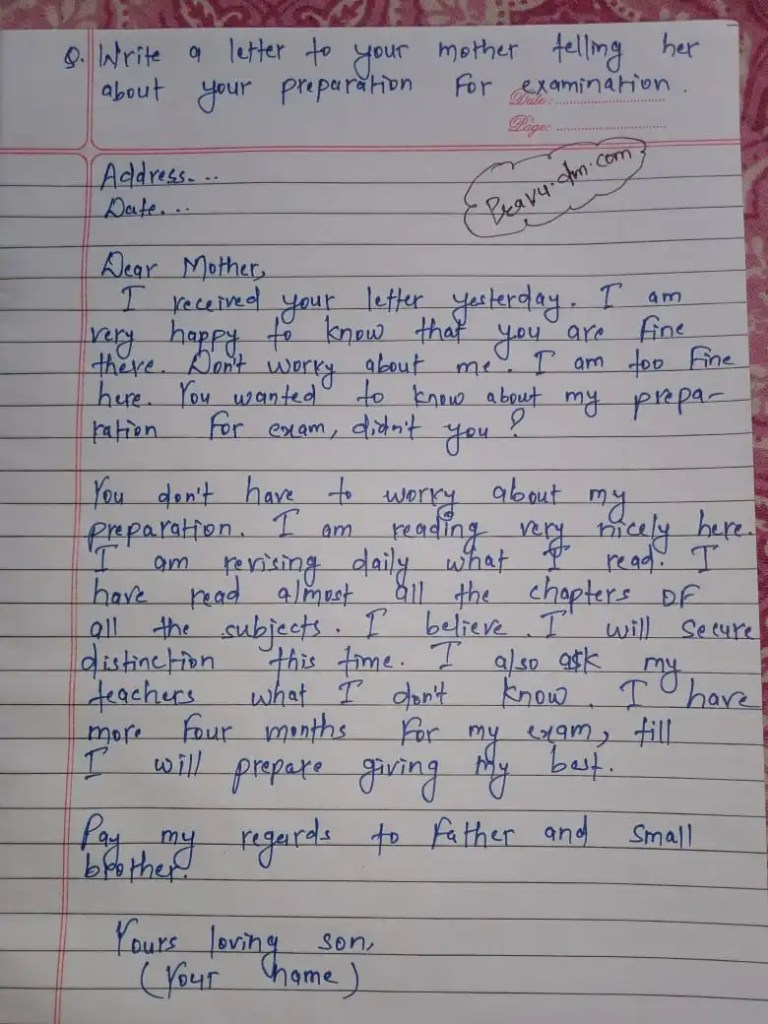 Q. Write a letter to your mother telling her
about your preparation for examination.
Date:
Page:
Address....
Date....
Dear Mother,
I received your letter yesterday. I am
very happy to know that you are fine
there. Don't worry about me. I am too fine
here. You wanted to know about my prepa-
ration for exam, didn't you?
You don't have to worry about my
preparation. I am reading very nicely here.
I am revising daily what I read. I
have read almost all the chapters of
all the subjects. I believe I will secure
distinction this time. I also ask my
teachers what I don't know. I have
more four months for my exam, till
I will prepare giving my best.
Pay my regards to father and small
brother.
Yours loving son,
(Your name)